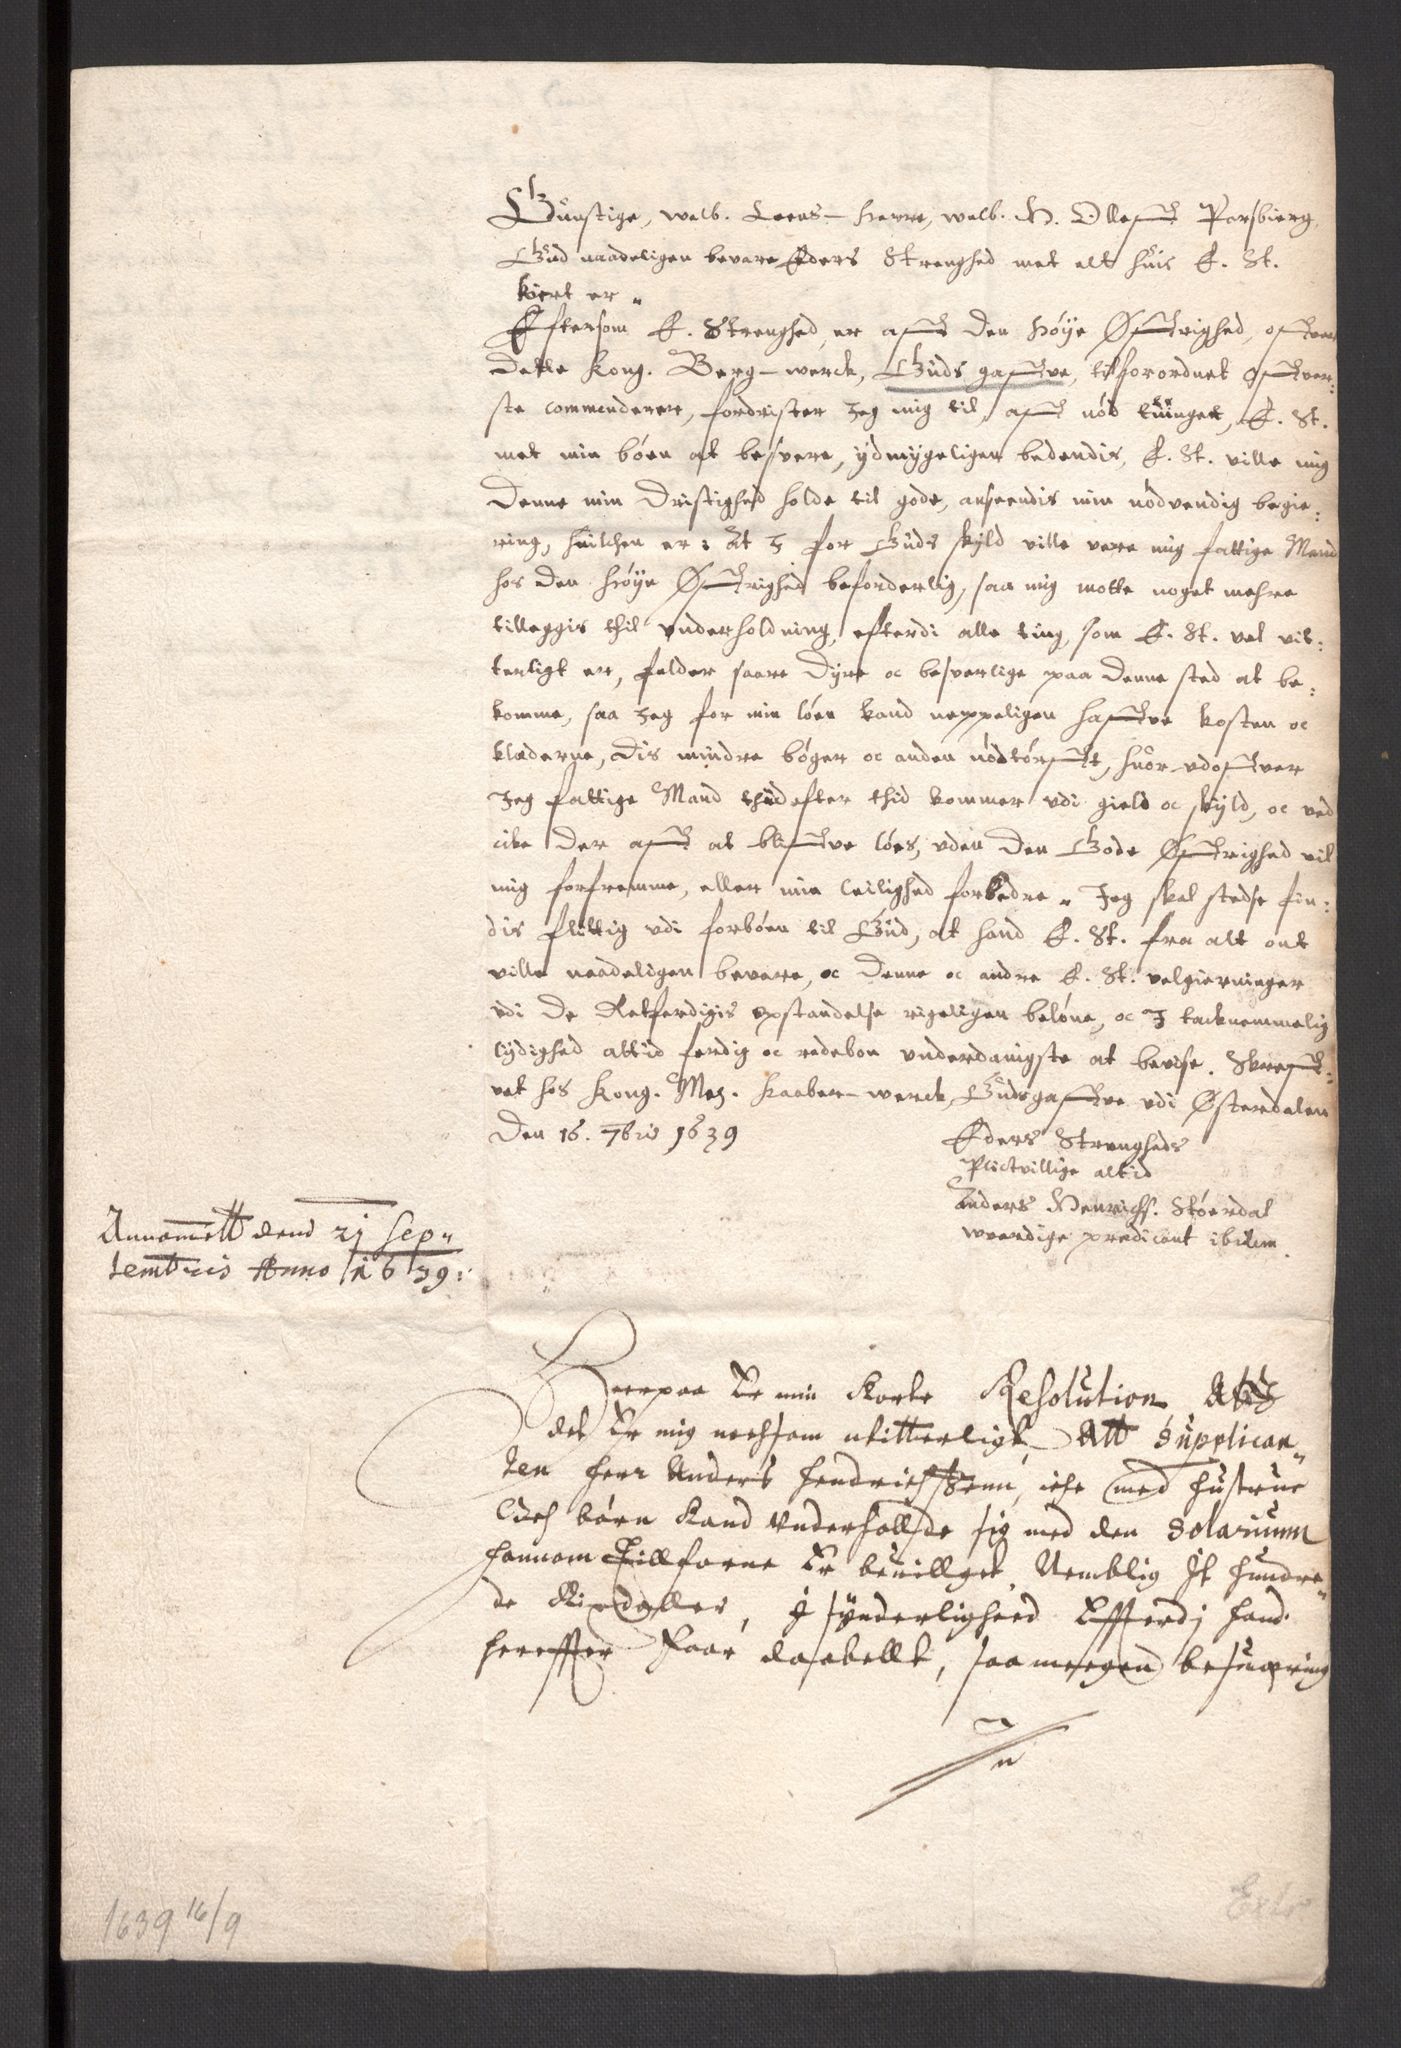 Gunstige, welb. Leens-herre, welb. H. Oleff Parsbierg,
Gud naadeligen bevare Eders Strenghed met alt huis E. St.
kiert er„
Eftersom E. Strenghed, er aff den høye Øffrighed, offver
dette Kong. Berg-werck, Guds gaffve, tilforordnet offver:
ste commenderer, fordrister Jeg mig til, aff nød tuinget, E. St.
met min bøen at besvere, ydmygeligen bedendis, E. St. ville mig
denne min dristighed holde til gode, anseendis min nødvendig begie:
ring, huilchen er: At I for Guds skyld ville vere mig fattige Mand
hos den høye Øffrighed beforderlig, saa mig motte noget mehre
tilleggis thil underholdning, efterdi alle ting, som E. St. vel vit:
terligt er, falder saare dyre oc besverlige paa denne sted at be:
komme, saa Jeg for min løen kand neppeligen haffve kosten oc
klæderne, dis mindre bøger oc anden nødtørfft, huor udoffver
Jeg fattige Mand thid efter thid kommer udi gield oc skyld, oc ved
icke der aff at bliffve løes, uden den Gode Øffrighed vil
mig forfremme, eller min leilighed forbedre„ Jeg skal stedse fin:
dis flittig udi forbøen til Gud, at hand E. St. fra alt ont
ville naadeligen bevare, oc denne oc andre E. St. velgierninger
udi de Retferdigis opstandelse rigeligen beløne, oc I tacknemmelig
lydighed altid ferdig oc redebon underdanigste at bevise. Skreff:
vet hos Kong. Mez. Kaaber-werck, Guds gaffve udi Østerdalen
Den 16. 7bris 1639
Eders Strengheds
Plictvillige altid
Anders Henrichs. Støerdal
uverdige predicant ibidem.
Annamett dend 21 Sep„
tembris Anno 1639:
Heerpaa Er min Korte Resolution
det Er mig nochsom witterligt, Att Supplican„
ten herr Anders Hendrichsønn, iche med hustrue
Och børn Kand Underhollde sig med den Solarium
hannom Tillforne Er beuillget, Nemblig It hundre„
de Rixdaller, I synderligheed Effterdj hand
hereffter Faar daabellt, saa meegen besuæring
1639 16/9